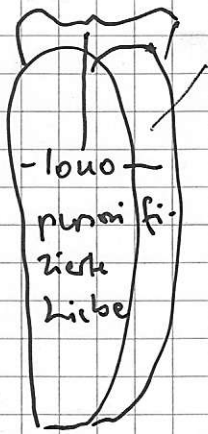 - louo -
personi fi-
zierte
Liebe